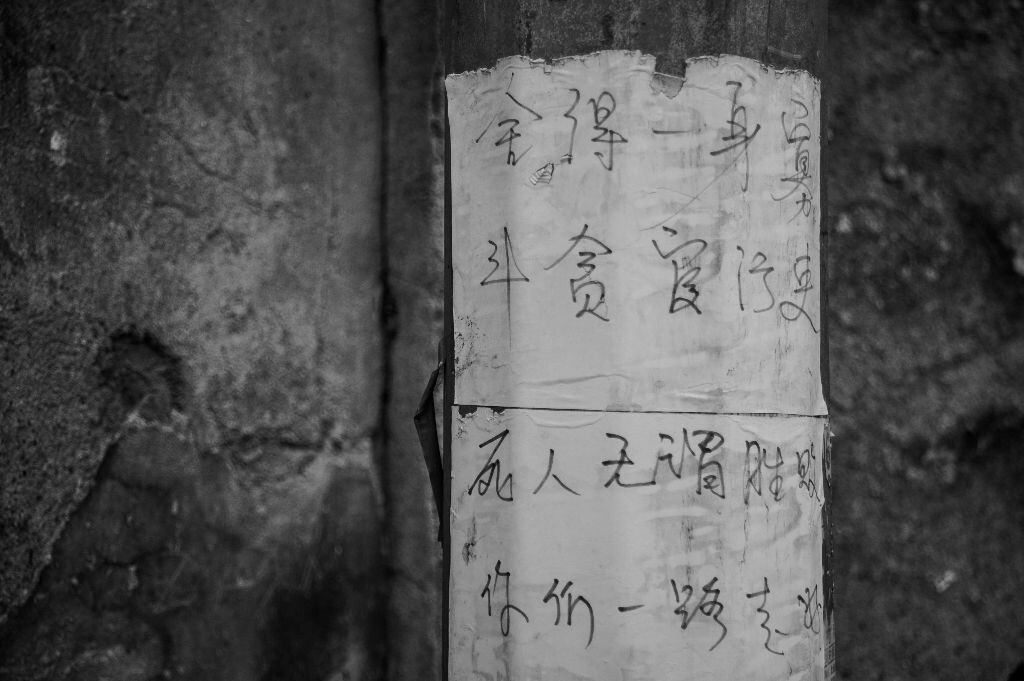 舍得一身
斗贪官污吏
死人无谓胜败
你们一路走好